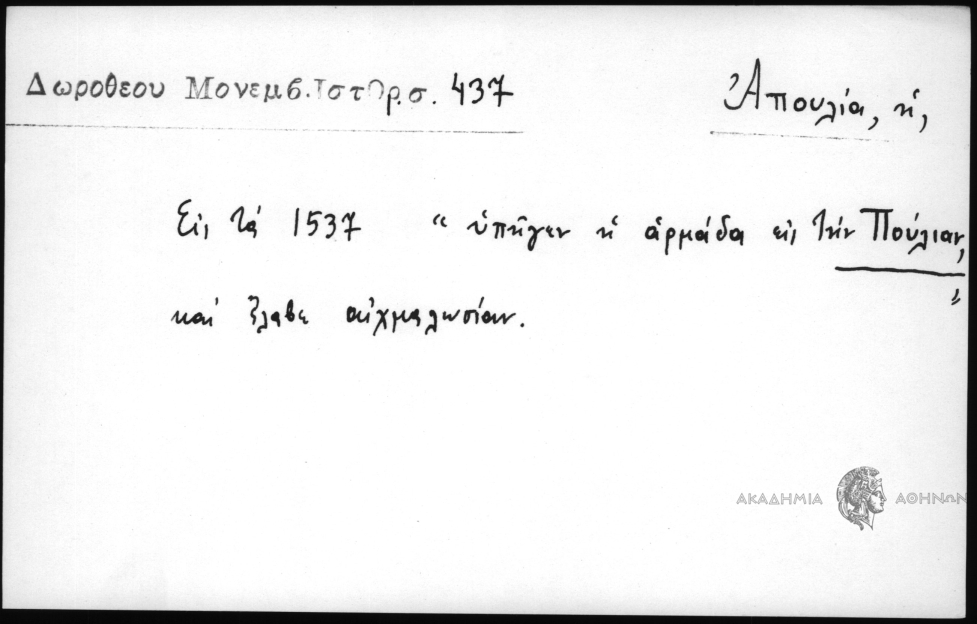 Δωροθεου Μονεμβ.Ιστορ.σ. 437
Ἀπουλία, ἡ,
Εἰς τὰ 1537 “ ὑπῆγεν ἡ ἁρμάδα εἰς τὴν Πούλιαν, „
καὶ ἔλαβε αἰχμαλωσίαν.
ΑΚΑΔΗΜΙΑ ΑΘΗΝΩΝ